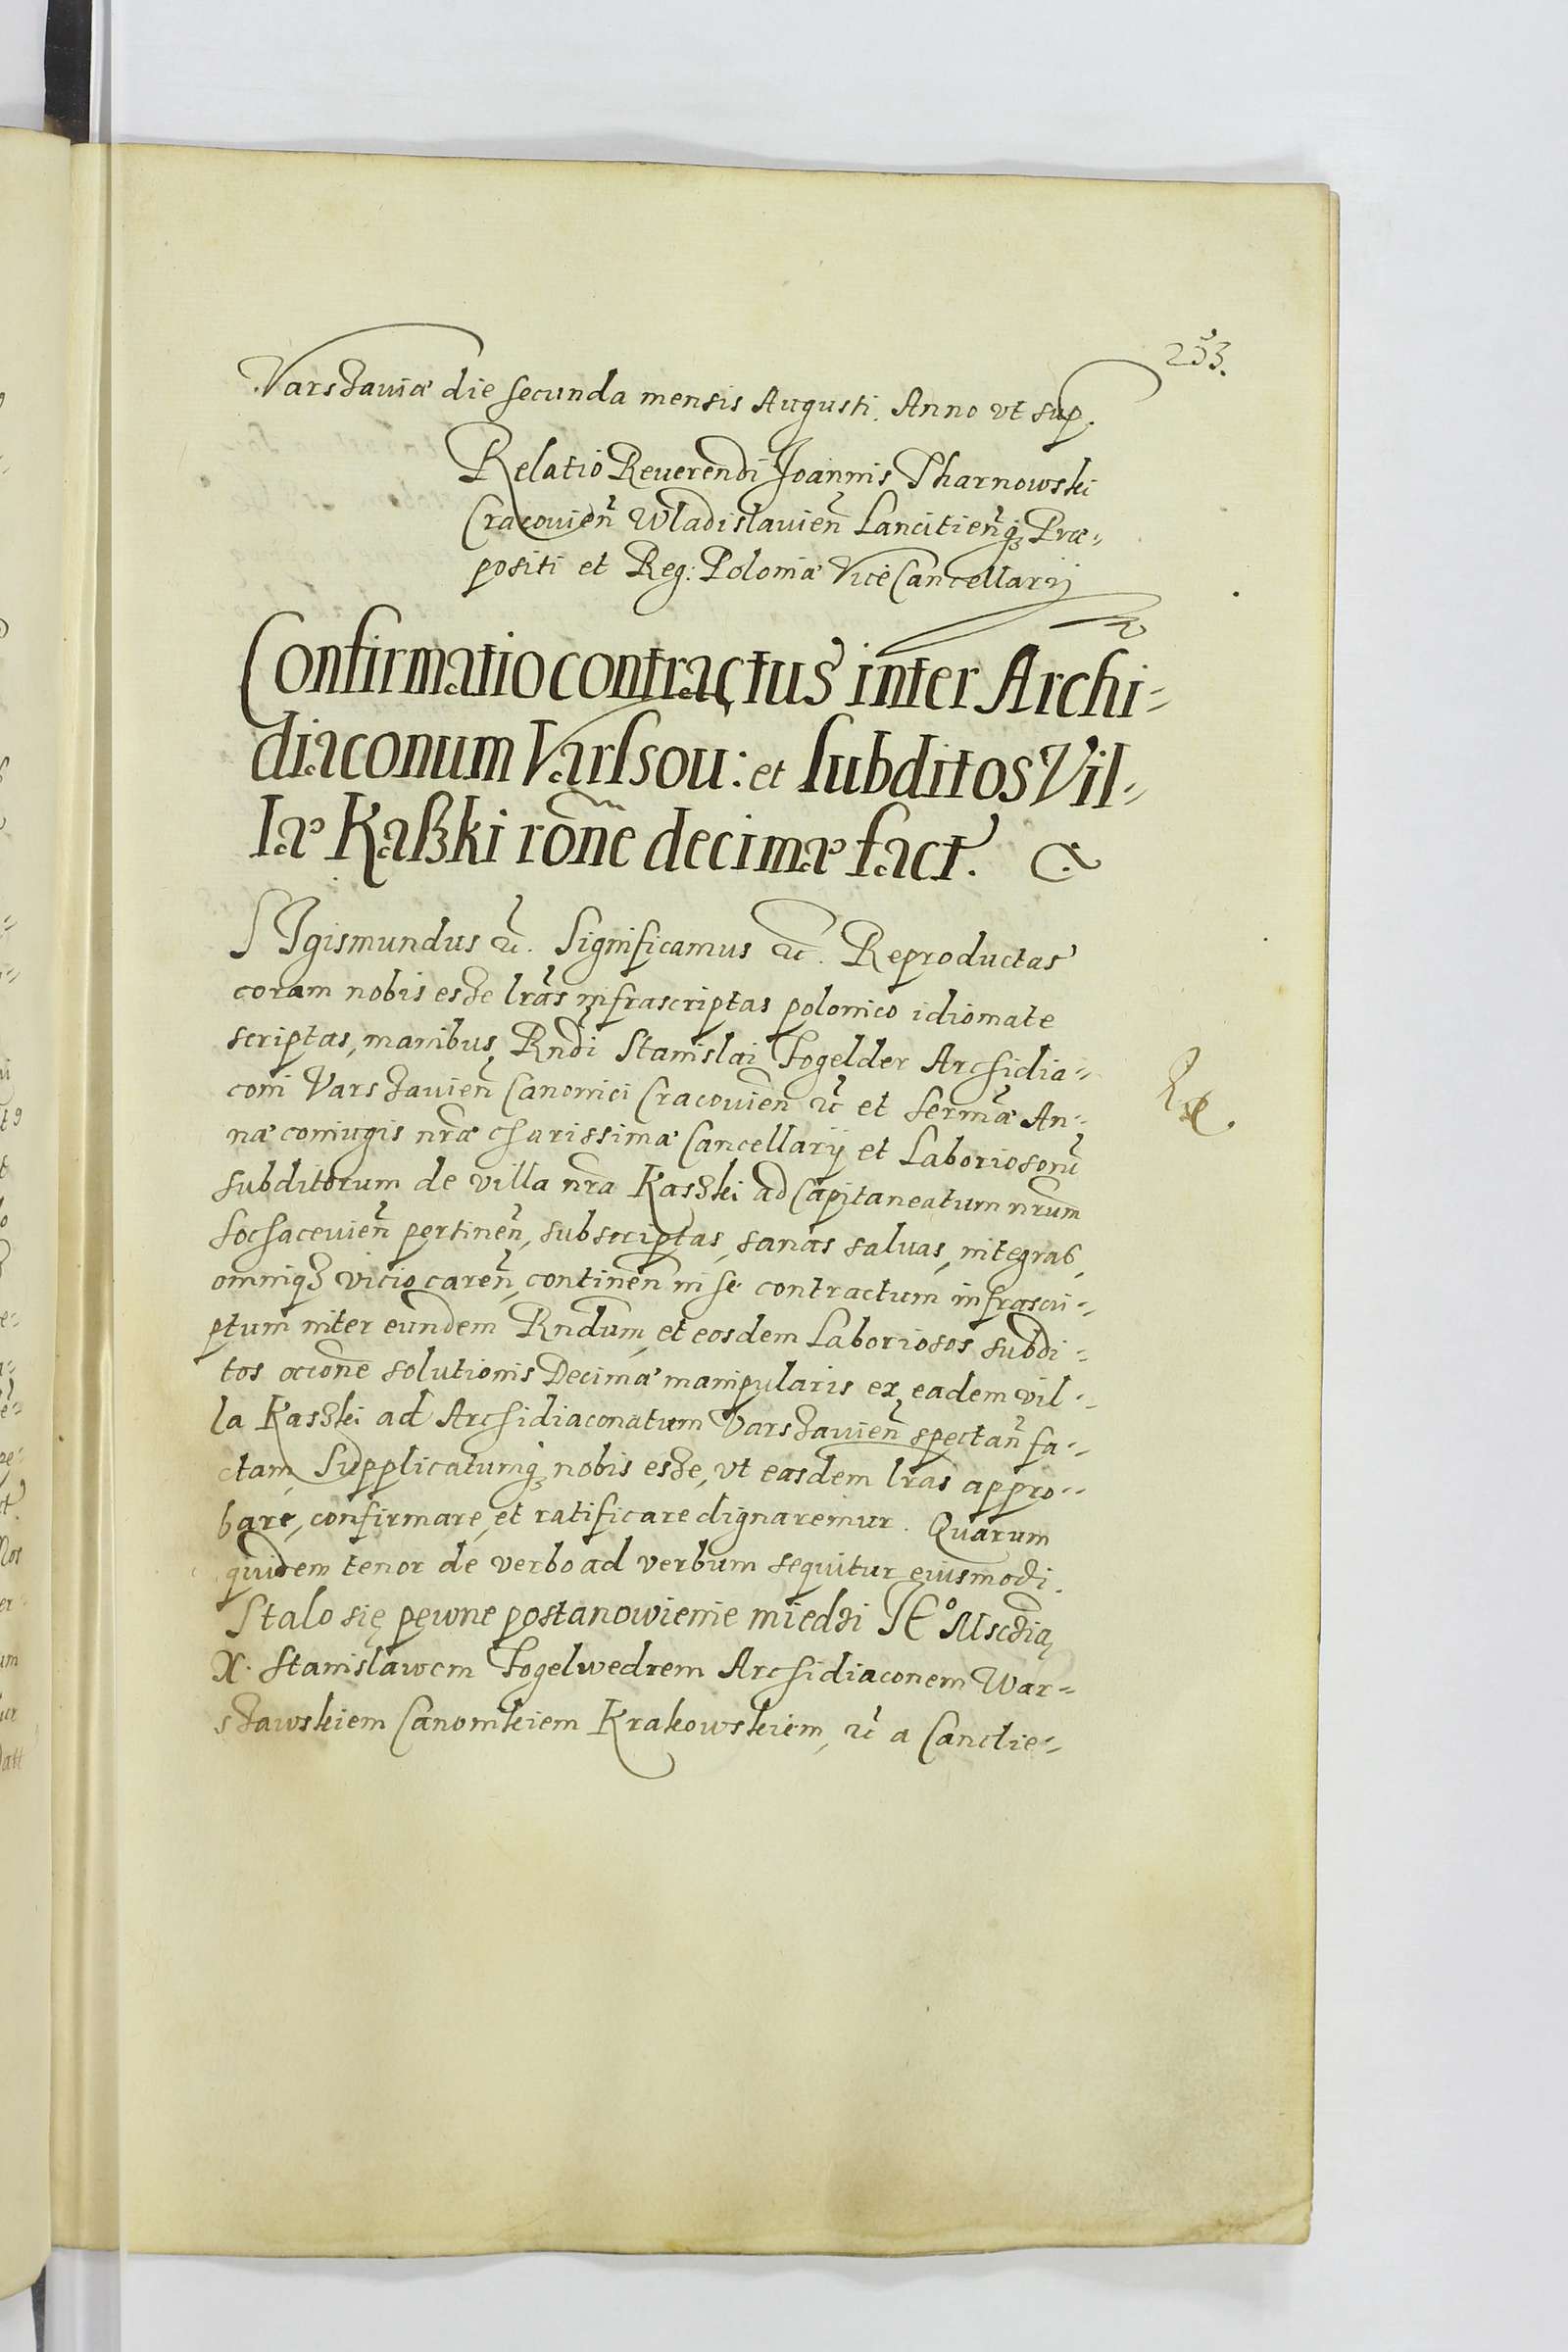 253.
Varszauiæ die secunda mensis Augusti. Anno vt sup.
Relatio Reuerendi Joannis Tharnowski
Cracouien̄ Wladislauien̄ Lancitien̄q₃ Præ-
positi et Reg: Poloniæ ViceCancellarij
Confirmatio contractus inter Archi-
diaconum Varssou: et subditos Vil-
læ Kaßki rōne decimæ fact.
SIgismundus ec̄. Significamus ec̄. Reproductas
coram nobis esse lrās infrascriptas polonico idiomate
scriptas, manibus Rndi Stanislai Fogelder Archidia-
coni Varszauien̄ Canonici Cracouien̄ ec̄ et Sermæ An-
næ coniugis nræ charissimæ Cancellarij et Laboriosorū
subditorum de villa nra Kaszki ad Capitaneatum nrum
Sochaceuien̄ pertinen̄, subscriptas, sanas saluas, integras,
omniq₃ vicio caren̄, continen̄ in se contractum infrascri-
ptum inter eundem Rndum, et eosdem Laboriosos subdi-
tos ocione solutionis Decimæ manipularis ex eadem vil-
la Kaszki ad Archidiaconatum Varszauien̄ spectan̄ fa-
ctam, Supplicatumq₃ nobis esse, vt easdem lras appro-
bare, confirmare, et ratificare dignaremur. Quarum
quidem tenor de verbo ad verbum sequitur eiusmodi.
Stalo się pewne postanowienie miedzi JE° Msczią
X. Stanislawem Fogelwedrem Archidiaconem War-
szawskiem Canonikiem Krakowskiem, ec̄ a Canclie-